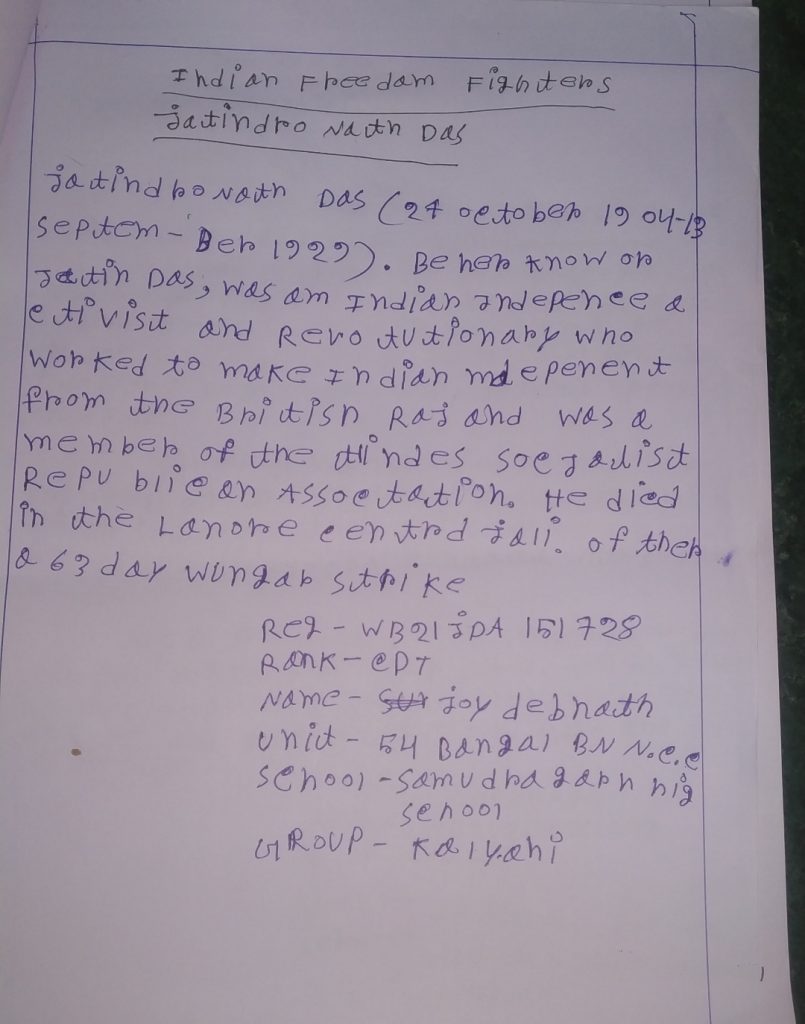 Indian Freedam Fighters
Jatindro Nath Das
Jatindro Nath Das (24 october 1904-13
septem-Ber 1929). Beher know on
Jatin Das, was am Indian Indepence a
ctivist and Revo tutionary who
worked to make Indian indepenent
from the British Raj and was a
member of the Hindes socialist
Repu blican Assoctation. He died
in the Lahore central jali. of ther
a 63 day wungar strike
Reg - WB21JDA 151728
Rank - CDT
Name - joy debnath
Unit - 54 Bangal BN N.C.C
School - Samudragarh hig
school
GROUP - Kalyani
1